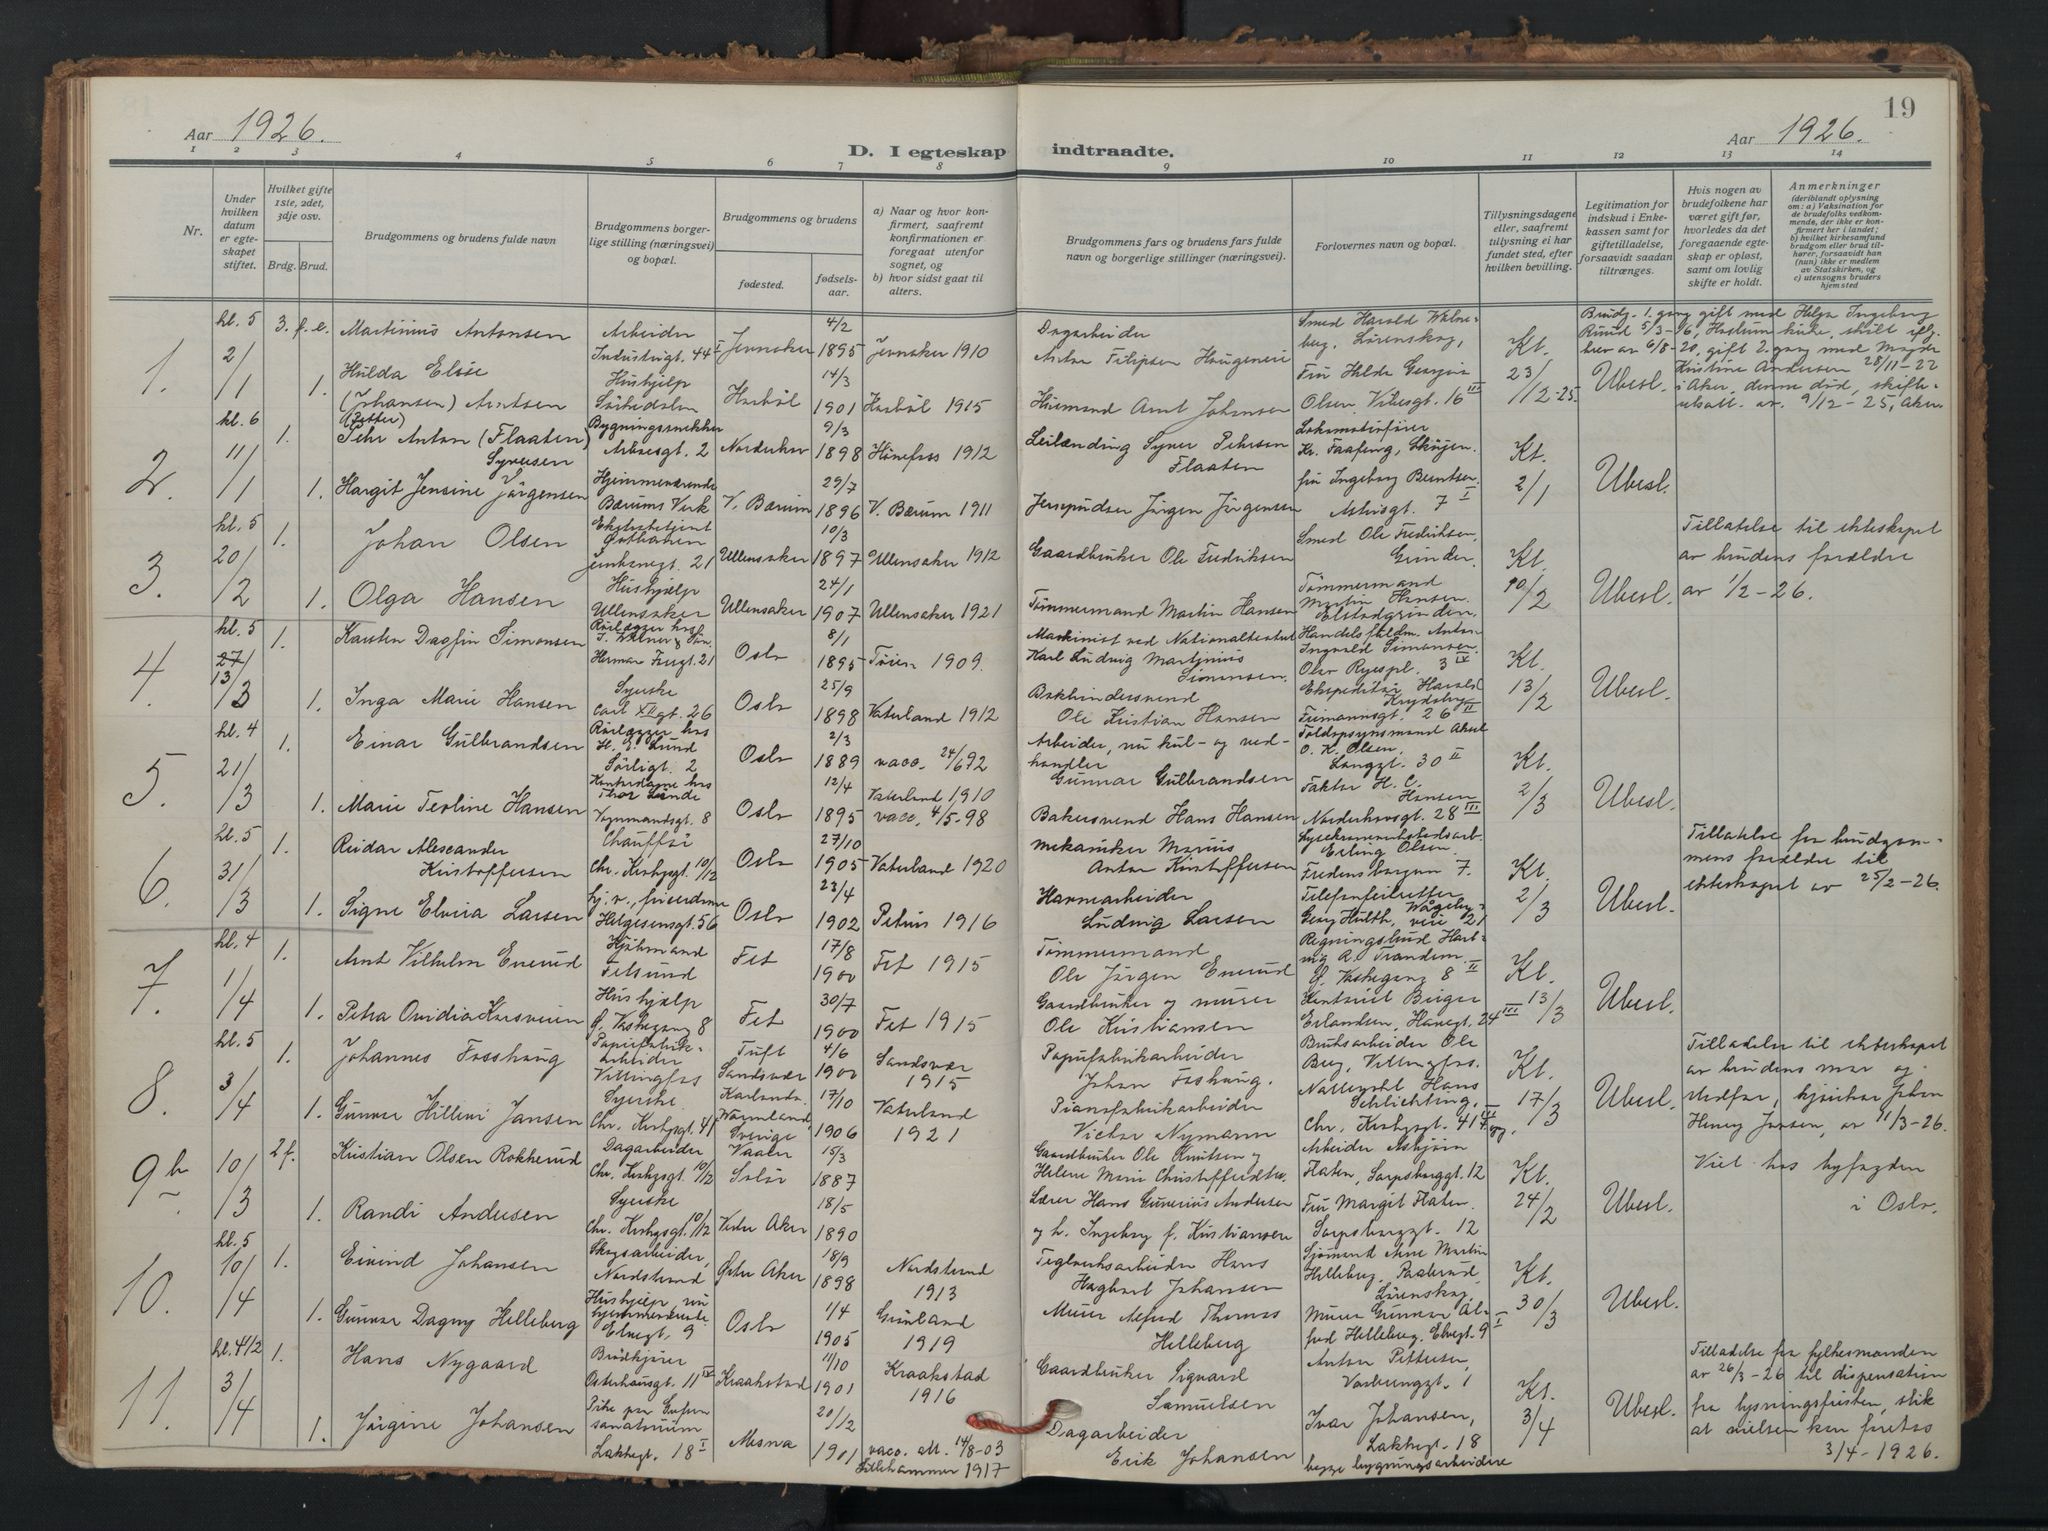 19
Aar 1926.
Aar 1926.
D. I egteskap indtraadte.
1 2 3 4 5 6 7 8 9 10 11 12 13 14
Nr.
Under hvilken datum er egteskapet stiftet.
Hvilket gifte 1ste, 2det, 3dje osv.
Brdg. Brud.
Brudgommens og brudens fulde navn
Brudgommens borgerlige stilling (næringsvei) og bopæl.
Brudgommens og brudens
fødested.
fødselsaar.
a) Naar og hvor konfirmert, saafremt konfirmationen er foregaat utenfor sognet, og
b) hvor sidst gaat til alters.
Brudgommens fars og brudens fars fulde navn og borgerlige stillinger (næringsvei).
Forlovernes navn og bopæl.
Tillysningsdagene eller, saafremt tillysning ei har fundet sted, efter hvilken bevilling.
Legitimation for indskud i Enkekassen samt for giftetilladelse, forsaavidt saadan tiltrænges.
Hvis nogen av brudefolkene har været gift før, hvorledes da det foregaaende egteskap er opløst, samt om lovlig skifte er holdt.
Anmerkninger (deriblandt oplysning om: a) Vaksination for de brudefolks vedkommende, der ikke er konfirmert her i landet; b) hvilket kirkesamfund brudgom eller brud tilhører, forsaavidt han (hun) ikke er medlem av Statskirken, og c) utensogns bruders hjemsted
1. kl. 5 2/1
Martinius Antonsen Arbeider Industrigt. 44 I Jevnaker 4/2 1895 Jevnaker 1910
Dagarbeider Anton Filipsen Smed Harald Lørenskog, Kt. 23/12-25. Ubesl.
Brudg. 1. gang gift med Helga Ingeborg Ruud skilt iflg. brev av 6/8-20, gift 2. gang med Kristine Andersen 28/11-22 i Aker, denne død, skifteutsatt. av. 9/12-25, Aker.
1. Hulda Elise (Johansen) Arntsen Hushjelp Sørkedalen 14/3 1901 1915
Arnt Johansen Fru Hilda Georgia Olsen, Vibesgt. 16 III
2. kl. 6 11/1
1. (Petter) Pehr Anton (Flaaten) Syversen Bygningssnekker 2 Norderhov 9/3 1898 Hønefoss 1912
Leilænding Syver Pehrsen Flaaten Lokomotivfører Kr. Faafeng, Skøyen. Kt. 2/1 Ubesl.
1. Hargit Jensine Jørgensen Hjemmeværende Bærums Verk V. Bærum 29/7 1896 V. Bærum 1911
Jernpudser Jørgen Jørgensen fru Ingeborg Berntsen 7 I
3. kl. 5 20/2
1. Johan Olsen 21 Ullensaker 10/3 1897 Ullensaker 1912
Gaardbruker Ole Fredriksen Smed Ole Fredriksen, Grinder. Kt. 10/2 Ubesl.
Tillatelse til ekteskapet av brudens forældre av 1/2-26.
1. Olga Hansen Hushjelp Ullensaker Ullensaker 24/1 1907 Ullensaker 1921
Tømmermand Martin Hansen Tømmermand Martin Hansen
4. kl. 5 27/13/3
1. Karsten Dagfin Simonsen Rørlægger hos 21 Oslo 8/1 1895 Tøien 1909.
Maskinist ved Nationalteatret Karl Ludvig Martinius Simonsen. Handelsfuldm. Anton Ingvald Simonsen. Olav Ryespl. 3 IV Kt. 13/2 Ubesl.
1. Inga Marie Hansen Syerske Carl XII gt. 26 Oslo 25/9 1898 Vaterland 1912
Bokbindersvend Ole Kristian Hansen Ekspeditør Harald Frimannsgt. 26 II
5. kl. 4 21/3
1. Einar Gulbrandsen Rørlægger hos H. E. Lund Sørligt. 2 Oslo 2/3 1889 vacc. 24/6 92
Arbeider, nu kul- og vedhandler Gunnar Gulbrandsen O. K. Olsen, Langgt. 30 II Kt. 2/3 Ubesl.
1. Marie Teoline Hansen Kontordame hos Thor Lunde Vognmandsgt. 8 Oslo 12/4 1895 Vaterland 1910 vacc. 4/5-98
Bakersvend Hans Hansen Faktor H. C. Hansen Norderhovsgt. 28 III
6. kl. 5 31/3
1. Reidar Alexander Kristoffersen Chauffør Chr. Krohgsgt. 10/12 Oslo 27/10 1905 Vaterland 1920
Mekaniker Marius Anton Kristoffersen Erling Olsen. Fredensborgvn 7. Kt. 2/3 Ubesl.
Tilladelse fra brudgommens forældre til ekteskapet av 25/2-26.
1. Signe Elvira Larsen Helgesensgt. 56 Oslo 23/4 1902 Petrus 1916
Havnearbeider Ludvig Larsen Georg Hulth, veie 21
7. kl. 4 1/4
1. Arnt Vilhelm Enerud Sjømand Fetsund Fet 17/8 1900 Fet 1915
Tømmermand Ole Jørgen Enerud Trandem. Ø. Vaskegang 8 II Kt. 13/3 Ubesl.
1. Petra Ovidia Korsveien Hushjelp Ø. Vaskegang 8 Fet 30/7 1900 Fet 1915
Gaardbruker og murer Ole Kristiansen Kontorist Birger Erlandsen, Havegt. 24 III
8. kl. 5 3/4
1. Johannes Fosshaug Papirfabrikarbeider Vittingfos Tuft Sandsvær 4/6 1900 Sandsvær 1915
Papirfabrikarbeider Johan Foshaug. Bruksarbeider Ole Berg, Vittingfos. Kt. 17/3 Ubesl.
Tilladelse til ekteskapet av brudens mor og stedfar, Johan Henry Jansen, av 11/3-26.
1. Gunvor Hillevi Jansen Syerske. Chr. Krohgsgt. 41 Karlanda. Värmland Sverige 17/10 1906 Vaterland 1921
Pianofabrikarbeider Victor Nymann Hans Schlichting, Chr. Krohgsgt. 41
9b 10/3
2 f. Kristian Olsen Rokkerud Dagarbeider Chr. Krohgsgt. 10/12 Vaaler Solør 15/3 1887
Gaardbruker Ole Knutsen og Helene Marie Christoffersdtr. Arbeider Asbjørn Flaten, Sarpsborggt. 12 Kt. 24/2 Ubesl.
Viet hos byfogden i Oslo.
1. Randi Andersen Syerske Chr. Krohgsgt. 10/12 Vestre Aker 18/5 1890
Lærer Hans Gunerius Andersen og h. Ingeborg f. Kristiansen Fru Margit Flaten. Sarpsborggt. 12
10. kl. 5 10/4
1. Eivind Johansen Skogsarbeider, Nordstrand Østre Aker 18/9 1898 Nordstrand 1913
Teglverksarbeider Hans Hagbart Johansen Sjømand Arne Martin Helleberg, Lørenskog. Kt. 30/3 Ubesl.
1. Gunvor Dagny Helleberg Hushjelp, nu hjemmeværende Elvegt. 9 Oslo 1/4 1905 Grønland 1919
Murer Alfred Thomas Helleberg Murer Gunnar Alfred Helleberg. Elvegt. 9 I
11. kl. 4 1/2 3/4
1. Hans Nygaard Brødkjører Osterhausgt. 11 IV Kraakstad 11/10 1901 Kraakstad 1916
Gaardbruker Sigvard Samuelsen Anton Pettersen, 1 Kt. 3/4 Ubesl.
Tilladelse fra fylkesmanden av 26/3-26 til dispensation fra lysningsfristen, slik at vielsen kan foretas 3/4-1926.
1. Jørgine Johansen sanatorium Lakkegt. 18 I Mesna 20/12 1901 vacc. att. 14/8-03 Lillehammer 1917
Dagarbeider Erik Johansen Ivar Johansen, Lakkegt. 18 begge bygningsarbeidere